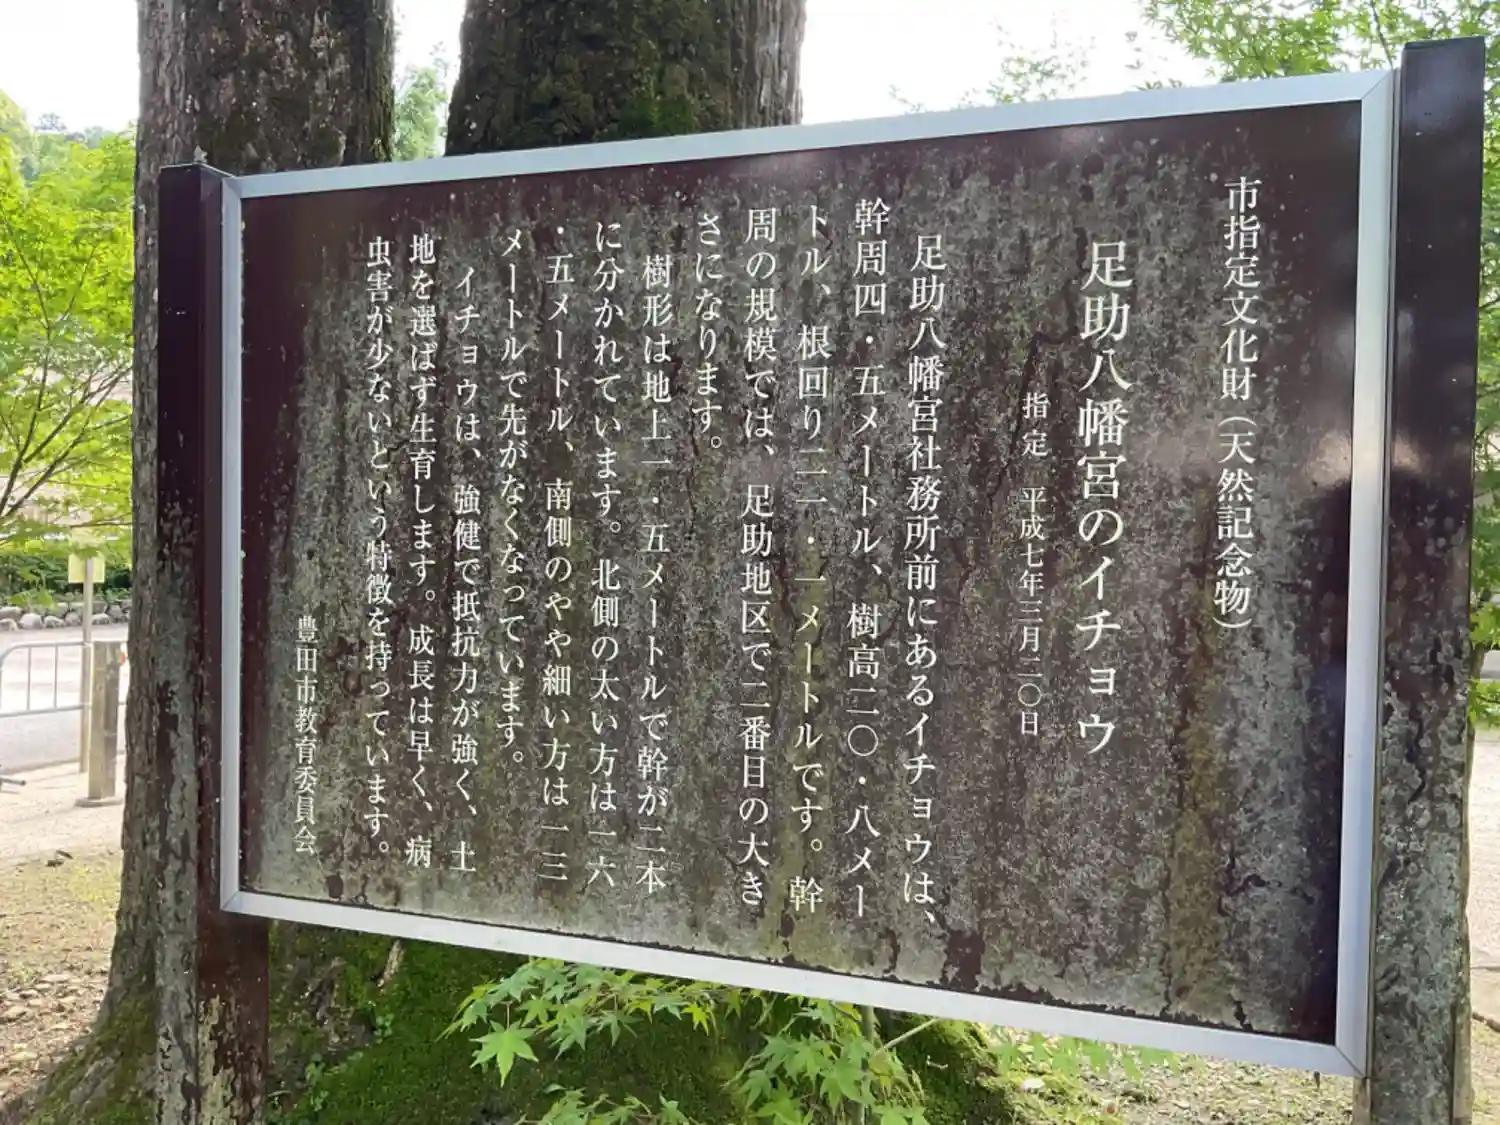 市指定文化財（天然記念物）
足助八幡宮のイチョウ
指定　平成七年三月二〇日
足助八幡宮社務所前にあるイチョウは、
幹周四・五メートル、樹高二〇・八メー
トル、根回り二一・一メートルです。幹
周の規模では、足助地区で二番目の大き
さになります。
樹形は地上一・五メートルで幹が二本
に分かれています。北側の太い方は一六
・五メートル、南側のやや細い方は一三
メートルで先がなくなっています。
イチョウは、強健で抵抗力が強く、土
地を選ばず生育します。成長は早く、病
虫害が少ないという特徴を持っています。
豊田市教育委員会